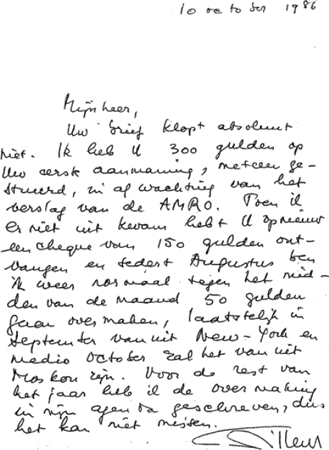 10 october 1986
Mijnheer,
Uw brief klopt absoluut
niet. Ik heb U 300 gulden op
Uw eerste aanmaning, meteen ge-
stuurd, in afwachting van het
verslag van de AMRO. Toen ik
er niet uit kwam hebt U opnieuw
een cheque van 150 gulden ont-
vangen en sedert Augustus ben
ik weer normaal tegen het mid-
den van de maand 50 gulden
gaan overmaken, laatstelijk in
September vanuit New-York en
medio october zal het vanuit
Moskou zijn. Voor de rest van
het jaar heb ik de overmaking
in mijn agenda geschreven, dus
het kan niet missen.